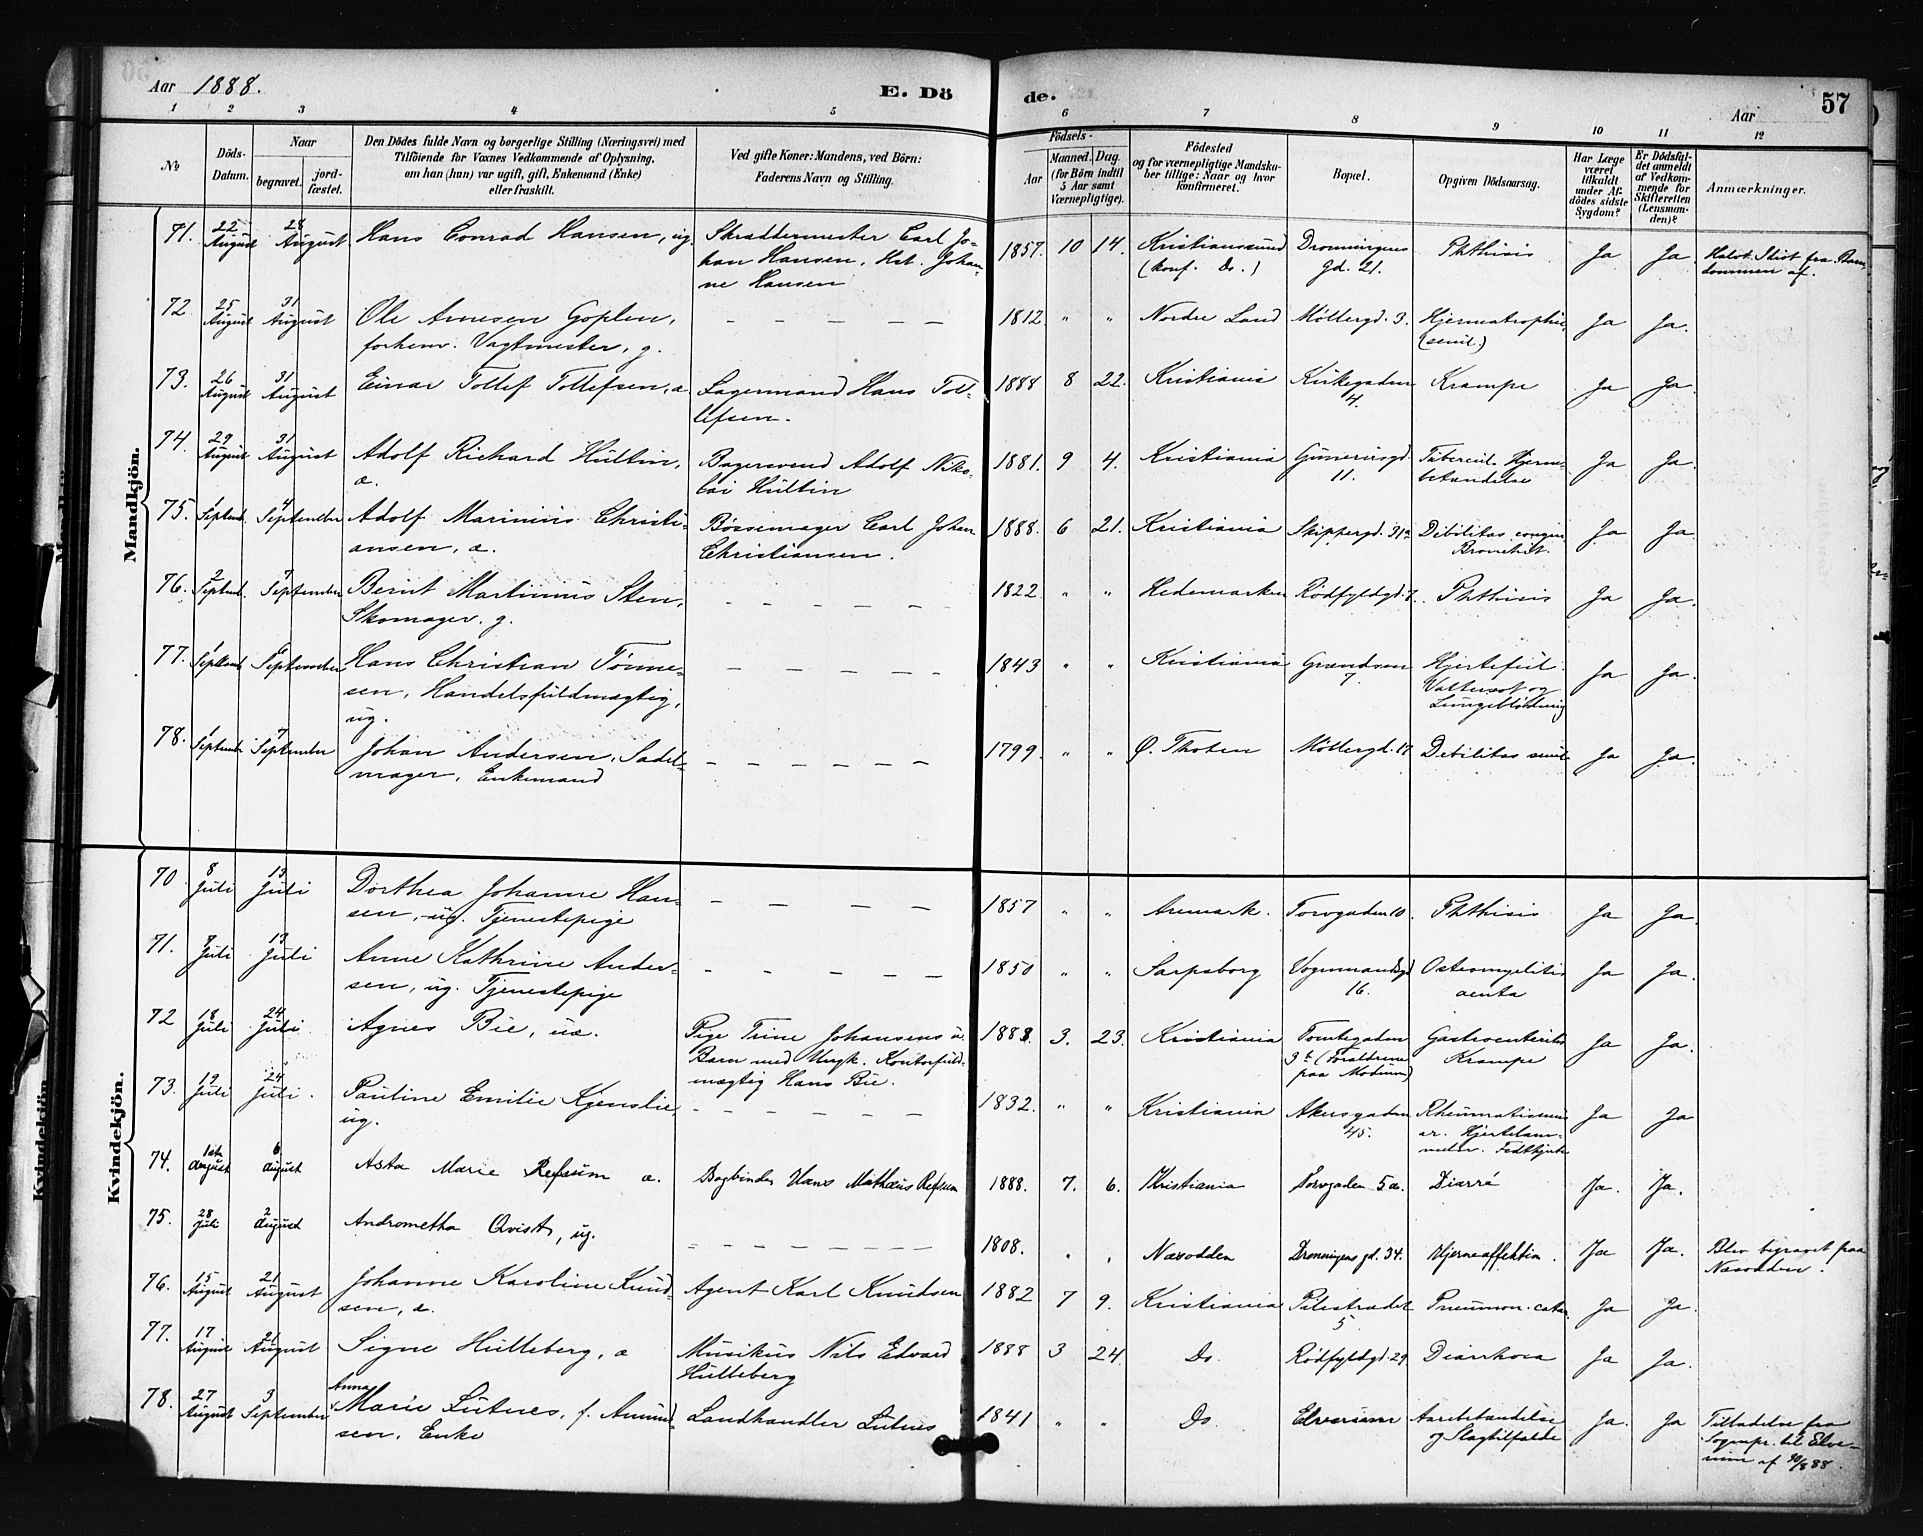 Aar 1888. E. Dö de. Aar 57
1 2 3 4 5 6 7 8 9 10 11 12
No. Döds-Datum. Naar begravet. jord-fæstet. Den Dödes fulde Navn og borgerlige Stilling (Næringsvei) med Tilföiende for Voxnes Vedkommende af Oplysning, om han (hun) var ugift, gift, Enkemand (Enke) eller fraskilt. Ved gifte Koner: Mandens, ved Börn: Faderens Navn og Stilling. Födsels- Aar Maaned. Dag. (for Börn indtil 5 Aar samt Værnepligtige). Födested og for værnepligtige Mandskaber tillige: Naar og hvor konfirmeret. Bopæl. Opgiven Dödsaarsag. Har Læge været tilkaldt under Afdödes sidste Sygdom? Er Dödsfaldet anmeldt af Vedkommende for Skifteretten (Lensmanden)? Anmærkninger.
Mandkjön.
71. 22 August 28 August Hans Conrad Hansen, ug. Skræddermester Carl Johan Hansen, Hst. Johanne Hansen 1857 10 14. Kristianssund (konf. Do.) Dronningens Gd. 21. Phthisis Ja Ja
72. 25 August 31 August Ole Arnesen Goplen, forhenv. Vagtmester, g. — — — — — 1812 " " Nordre Land Møllergd. 3. (senil.) Ja Ja.
73. 26 August 31 August Einar Tollef Tollefsen, æ. Lagermand Hans Tollefsen. 1888 8 22. Kristiania Kirkegaden 4. Krampe Ja Ja.
74 29 August 31 August Adolf Richard Hultin, æ. Bagersvend Adolf Nikolai Hultin 1881. 9 4. Kristiania Gunerusgd. 11. Tubercul. Hjernebetændelse Ja Ja.
75. 1 Septemb. 4 September Adolf Marinius Christiansen, æ. Bøssemager Carl Johan Christiansen. 1888. 6 21. Kristiania Skippergd. 31a Debilitas congen. Bronchit. Ja Ja.
76. 2 Septemb. 7 September Bernt Martinius Sten, Skomager. g. — — — — — — 1822 " " Hedemarken Rødfyldgd. 7. Phthisis Ja Ja.
77. 1 Septemb September Hans Christian Tønnesen, Handelsfuldmægtig, ug. — — — — — 1843 " " Kristiania Grændsen 7. Hjertefeil. Vattersot og Lungeblødning Ja Ja.
78. 1 Septembr 7 September Johan Andersen, Sadelmager, Enkemand — — — — — — 1799. " " Ø. Thoten Møllergd. 17 Debilitas senil Ja Ja.
Kvindekjön.
70 8 Juli 13 Juli Dorthea Johanne Hansen, ug. Tjenestepige — — — — 1857 " " Aremark. Torvgaden 10. Phthisis Ja Ja.
71. 9 Juli 13 Juli Anne Kathrine Andersen, ug. Tjenestepige — — — — — 1850 " " Sarpsborg Vognmandsgd 16. Osteomyelitis acuta Ja Ja.
72 18 Juli 24 Juli. Agnes Bie, uæ. Pige Trine Johansens u. Barn med Ungk. Kontorfuldmægtig Hans Bie. 1888. 3. 23. Kristiania Tomtegaden 3b (Forældrene paa Modum) Gastroenterit. Krampe Ja Ja.
73. 19 Juli 24 Juli. Pauline Emilie Kjenslie, ug. — — — — — — 1832. " " Kristiania Akersgaden 45. Rheumatismus Ja Ja
74. 1ste August 6 August Asta Marie Refsum æ. Bogbinder Hans Mathæus Refsum 1888. 7. 6. Kristiania Torvgaden 5a. Diarré Ja. Ja.
75. 28 Juli 2 August Andrometha Qvist, ug. — — — — — — 1808. " " Næsodden Dronningens gd. 34. Hjerneaffektion. Ja Ja. Blev begravet paa Næsodden.
76. 15 August 21 August Johanne Karoline Knudsen, æ. Agent Karl Knudsen 1882 7 9. Kristiania Pilestrædet 5 Pneumon. catar. Ja Ja.
77. 17 August 21 August Signe Hulleberg, æ Musikus Nils Edvard Hulleberg 1888 3 24. Do. Rødfyldgd. 29. Diarrhoea Ja Ja.
78. 27 August 3 September Anna Marie Lutnes, f. Amundsen. Enke Landhandler Lutnes 1841 " " Do. Elverum Aarebetændelse og Slagtilfælde Ja. Ja Tilladelse fra Sognepr. til Elverum af 30/8 88.